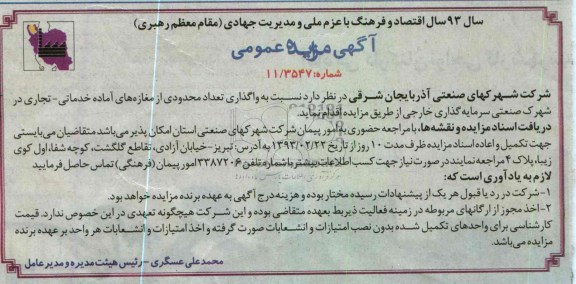 سال ۹۳ سال اقتصاد و فرهنگ با عزم ملی و مدیریت جهادی (مقام معظم رهبری)
آگهی مزایده عمومی
شماره: ۱۱/۳۵۴۷
شرکت شهرکهای صنعتی آذربایجان شرقی در نظر دارد نسبت به واگذاری تعداد محدودی از مغازه‌های آماده خدماتی - تجاری در
شهرک صنعتی سرمایه گذاری خارجی از طریق مزایده اقدام نماید.
دریافت اسناد مزایده و نقشه‌ها، با مراجعه حضوری به امور پیمان شرکت شهرکهای صنعتی استان امکان پذیر می‌باشد متقاضیان می‌بایستی
جهت تکمیل و اعاده اسناد مزایده ظرف مدت ۱۰ روز از تاریخ ۱۳۹۳/۰۲/۲۳ به آدرس: تبریز - خیابان آزادی، تقاطع گلگشت، کوچه شفا، اول کوی
زیبا، پلاک ۴ مراجعه نمایند در صورت نیاز جهت کسب اطلاعات بیشتر با شماره تلفن ۳۳۸۷۲۰۶ امور پیمان (فرهنگی) تماس حاصل فرمایید
لازم به یادآوری است که:
۱- شرکت در رد یا قبول هر یک از پیشنهادات رسیده مختار بوده و هزینه درج آگهی به عهده برنده مزایده خواهد بود.
۲- اخذ مجوز از ارگانهای مربوطه در زمینه فعالیت ذیربط بعهده متقاضی بوده و این شرکت هیچگونه تعهدی در این خصوص ندارد. قیمت
کارشناسی برای واحدهای تکمیل شده بدون نصب امتیازات و انشعابات صورت گرفته و اخذ امتیازات و انشعابات هر واحد بر عهده برنده
مزایده می‌باشد.
محمدعلی عسگری - رئیس هیئت مدیره و مدیر عامل